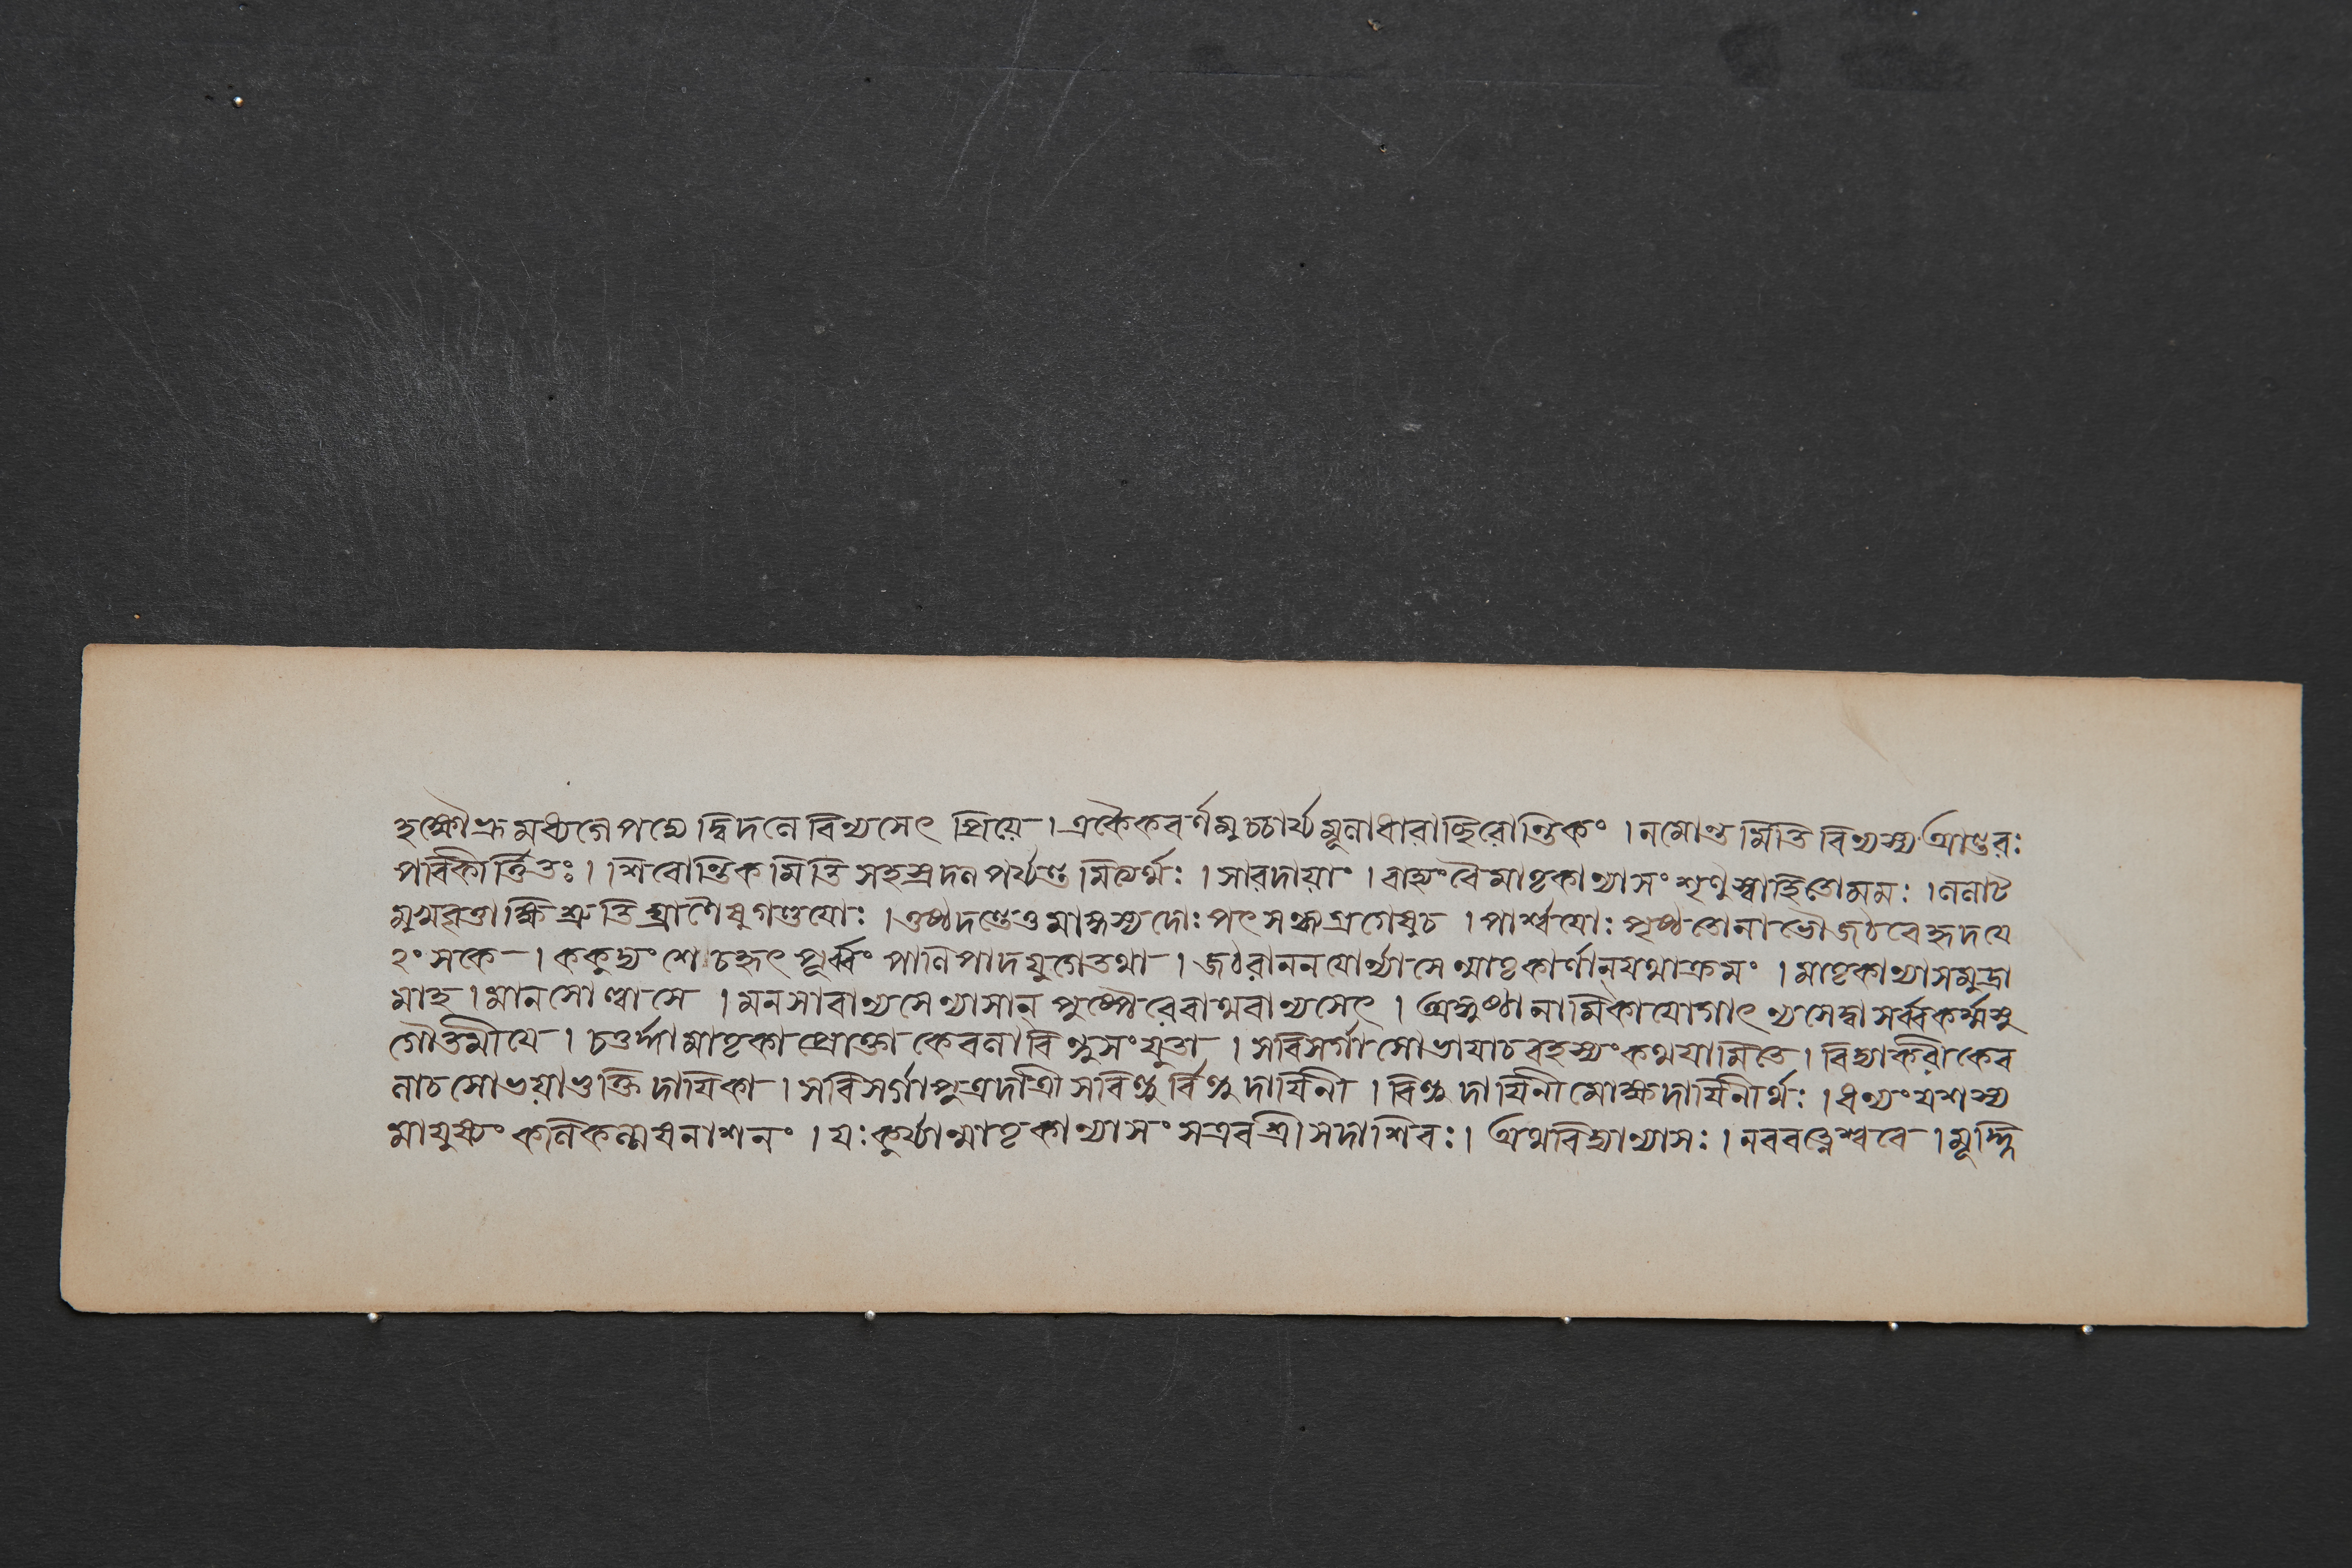 হক্ষৌভ্রূমধ্যগে পদ্মে দ্বিদলে বিন্যসেৎ প্রিয়ে । একৈকবর্ণমুচ্চার্য্য মূলাধারাচ্ছিরোন্তিকং । নমোন্তমিতি বিন্যস্য আন্তরঃ
পরিকীর্ত্তিতঃ । শিরোন্তিকমিতি সহস্রদলপর্য্যন্তমিত্যর্থঃ । সারদায়াং । বাহ্যং বৈ মাতৃকান্যাসং শৃণুস্বাহিতো মম: । ললাট
মুখবৃত্তাক্ষিশ্রুতিঘ্রাণৈষু গণ্ডয়োঃ । ওষ্ঠদন্তোত্তমাঙ্গস্য দোঃপৎসন্ধ্যগ্রগেষু চ । পার্শ্বয়োঃ পৃষ্ঠতো নাভৌ জঠরে হৃদয়ে
২ংসকে । ককুদ্যংশে চ হৃৎপূর্ব্বং পাণিপাদযুগে তথা । জঠরাননয়োর্ন্যাসেন্মাতৃকার্ণান্ যথাক্রমং । মাতৃকান্যাসমুদ্রা
মাহ । মানসোল্বাসে । মনসা বা ন্যসেন্ন্যাসান্ পুষ্পৈরেবাথবা ন্যসেৎ । অঙ্গুষ্ঠানামিকাযোগাৎ ন্যসেদ্বা সর্ব্বকর্ম্মসু
গৌতমীয়ে । চতুর্দ্ধা মাতৃকা প্রোক্তা কেবলা বিন্দুসংযুতা । সবিসর্গা সোভয়া চ রহস্যং কথয়ামি তে । বিদ্যাকরী কেব
লা চ সোভয়া ভুক্তিদায়িকা । সবিসর্গা পুত্রদাত্রী সবিন্দুর্বিন্দুদায়িনী । বিন্দুদায়িনী মোক্ষদায়িনীর্থঃ । ধন্যং যশস্য
মায়ুষ্যং কলিকল্মষনাশনং । যঃ কুর্য্যান্মাতৃকান্যাসং স এব শ্রীসদাশিবঃ । অথ বিদ্যান্যাসঃ । নবরত্নেশ্বরে । মূর্দ্ধ্নি